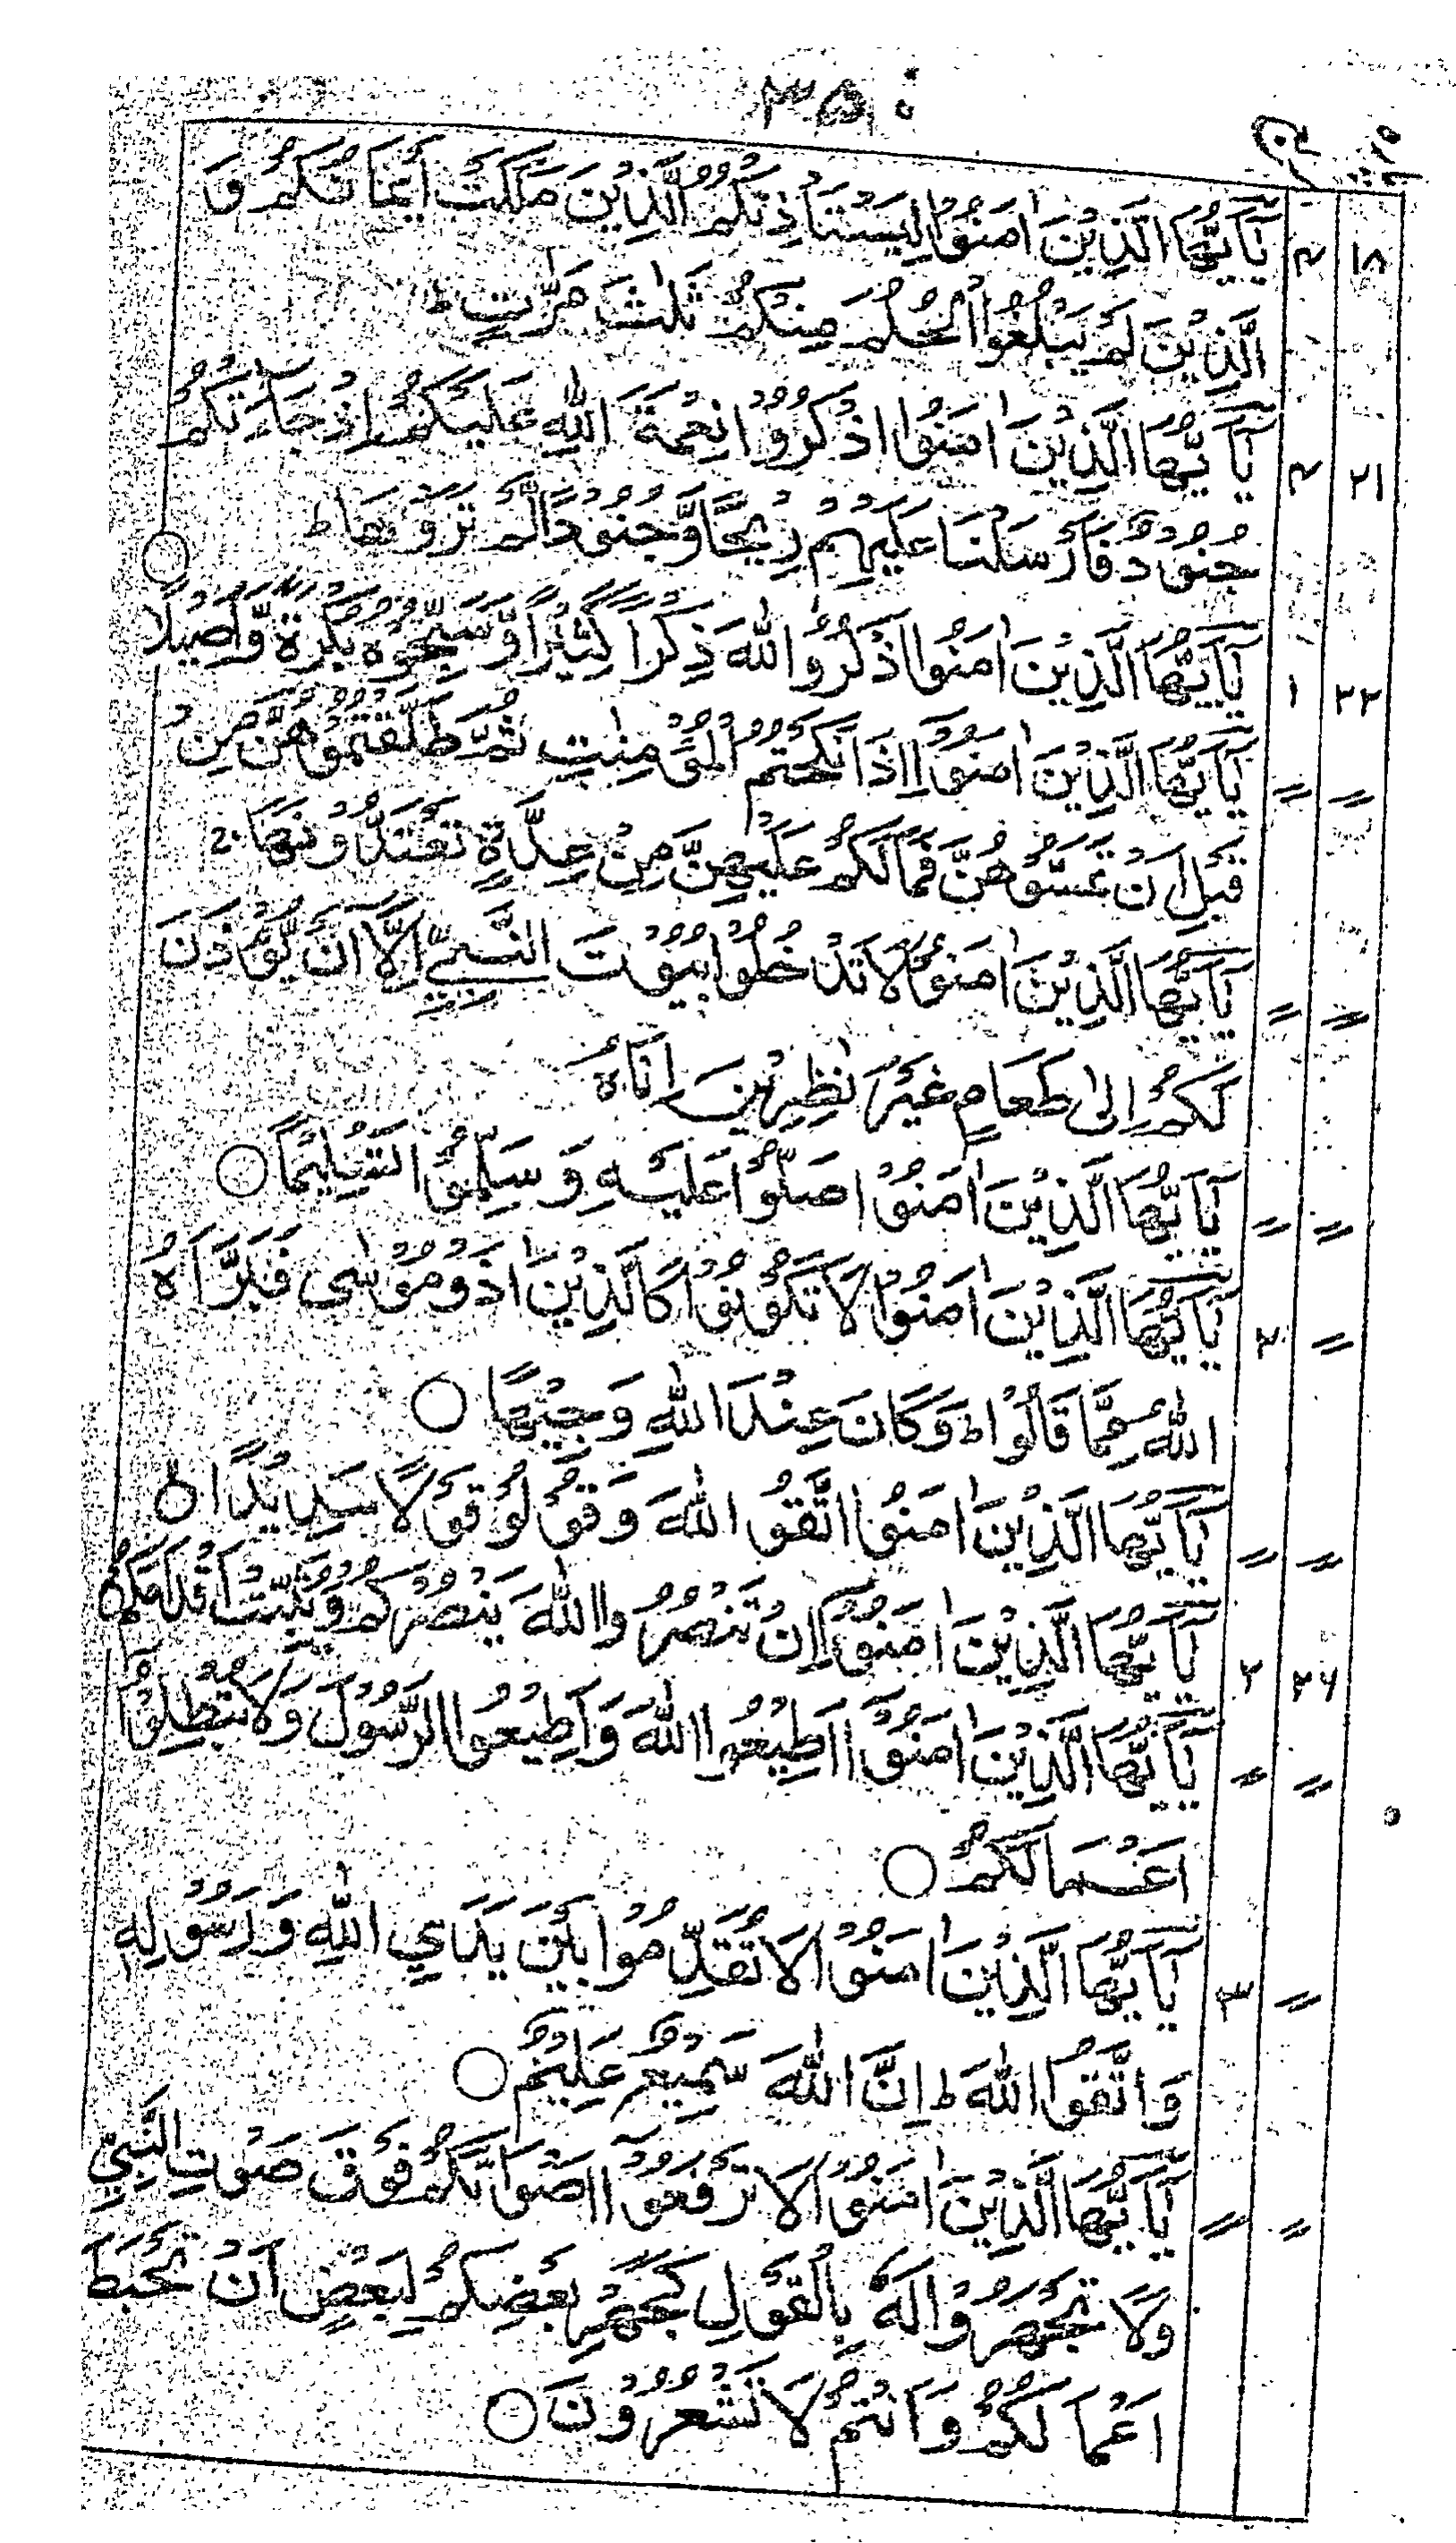 ۳۵۰
۱۸ ۴ يٰٓاَيُّهَا الَّذِيْنَ اٰمَنُوْا لِيَسْتَاْذِنْكُمُ الَّذِيْنَ مَلَكَتْ اَيْمَانُكُمْ وَ
الَّذِيْنَ لَمْ يَبْلُغُوا الْحُلُمَ مِنْكُمْ ثَلٰثَ مَرّٰتٍ ط
۲۱ ۴ يٰٓاَيُّهَا الَّذِيْنَ اٰمَنُوا اذْكُرُوْا نِعْمَةَ اللّٰهِ عَلَيْكُمْ اِذْ جَآءَتْكُمْ
جُنُوْدٌ فَاَرْسَلْنَا عَلَيْهِمْ رِيْحًا وَّجُنُوْدًا لَّمْ تَرَوْهَا ط ○
۲۲ ۱ يٰٓاَيُّهَا الَّذِيْنَ اٰمَنُوا اذْكُرُوا اللّٰهَ ذِكْرًا كَثِيْرًا وَّسَبِّحُوْهُ بُكْرَةً وَّاَصِيْلًا
〃 〃 يٰٓاَيُّهَا الَّذِيْنَ اٰمَنُوْٓا اِذَا نَكَحْتُمُ الْمُؤْمِنٰتِ ثُمَّ طَلَّقْتُمُوْهُنَّ مِنْ
قَبْلِ اَنْ تَمَسُّوْهُنَّ فَمَا لَكُمْ عَلَيْهِنَّ مِنْ عِدَّةٍ تَعْتَدُّوْنَهَا ج
〃 〃 يٰٓاَيُّهَا الَّذِيْنَ اٰمَنُوْا لَا تَدْخُلُوْا بُيُوْتَ النَّبِيِّ اِلَّآ اَنْ يُّؤْذَنَ
لَكُمْ اِلٰى طَعَامٍ غَيْرَ نٰظِرِيْنَ اِنٰىهُ
〃 〃 يٰٓاَيُّهَا الَّذِيْنَ اٰمَنُوْا صَلُّوْا عَلَيْهِ وَسَلِّمُوْا تَسْلِيْمًا ○
〃 ۲ يٰٓاَيُّهَا الَّذِيْنَ اٰمَنُوْا لَا تَكُوْنُوْا كَالَّذِيْنَ اٰذَوْا مُوْسٰى فَبَرَّاَهُ
اللّٰهُ مِمَّا قَالُوْا ط وَكَانَ عِنْدَ اللّٰهِ وَجِيْهًا ○
〃 〃 يٰٓاَيُّهَا الَّذِيْنَ اٰمَنُوا اتَّقُوا اللّٰهَ وَقُوْلُوْا قَوْلًا سَدِيْدًا ○
۲۶ ۲ يٰٓاَيُّهَا الَّذِيْنَ اٰمَنُوْٓا اِنْ تَنْصُرُوا اللّٰهَ يَنْصُرْكُمْ وَيُثَبِّتْ اَقْدَامَكُمْ
〃 〃 يٰٓاَيُّهَا الَّذِيْنَ اٰمَنُوْٓا اَطِيْعُوا اللّٰهَ وَاَطِيْعُوا الرَّسُوْلَ وَلَا تُبْطِلُوْٓا
اَعْمَالَكُمْ ○
〃 ۳ يٰٓاَيُّهَا الَّذِيْنَ اٰمَنُوْا لَا تُقَدِّمُوْا بَيْنَ يَدَيِ اللّٰهِ وَرَسُوْلِهٖ
وَاتَّقُوا اللّٰهَ ط اِنَّ اللّٰهَ سَمِيْعٌ عَلِيْمٌ ○
〃 〃 يٰٓاَيُّهَا الَّذِيْنَ اٰمَنُوْا لَا تَرْفَعُوْٓا اَصْوَاتَكُمْ فَوْقَ صَوْتِ النَّبِيِّ
وَلَا تَجْهَرُوْا لَهٗ بِالْقَوْلِ كَجَهْرِ بَعْضِكُمْ لِبَعْضٍ اَنْ تَحْبَطَ
اَعْمَالُكُمْ وَاَنْتُمْ لَا تَشْعُرُوْنَ ○